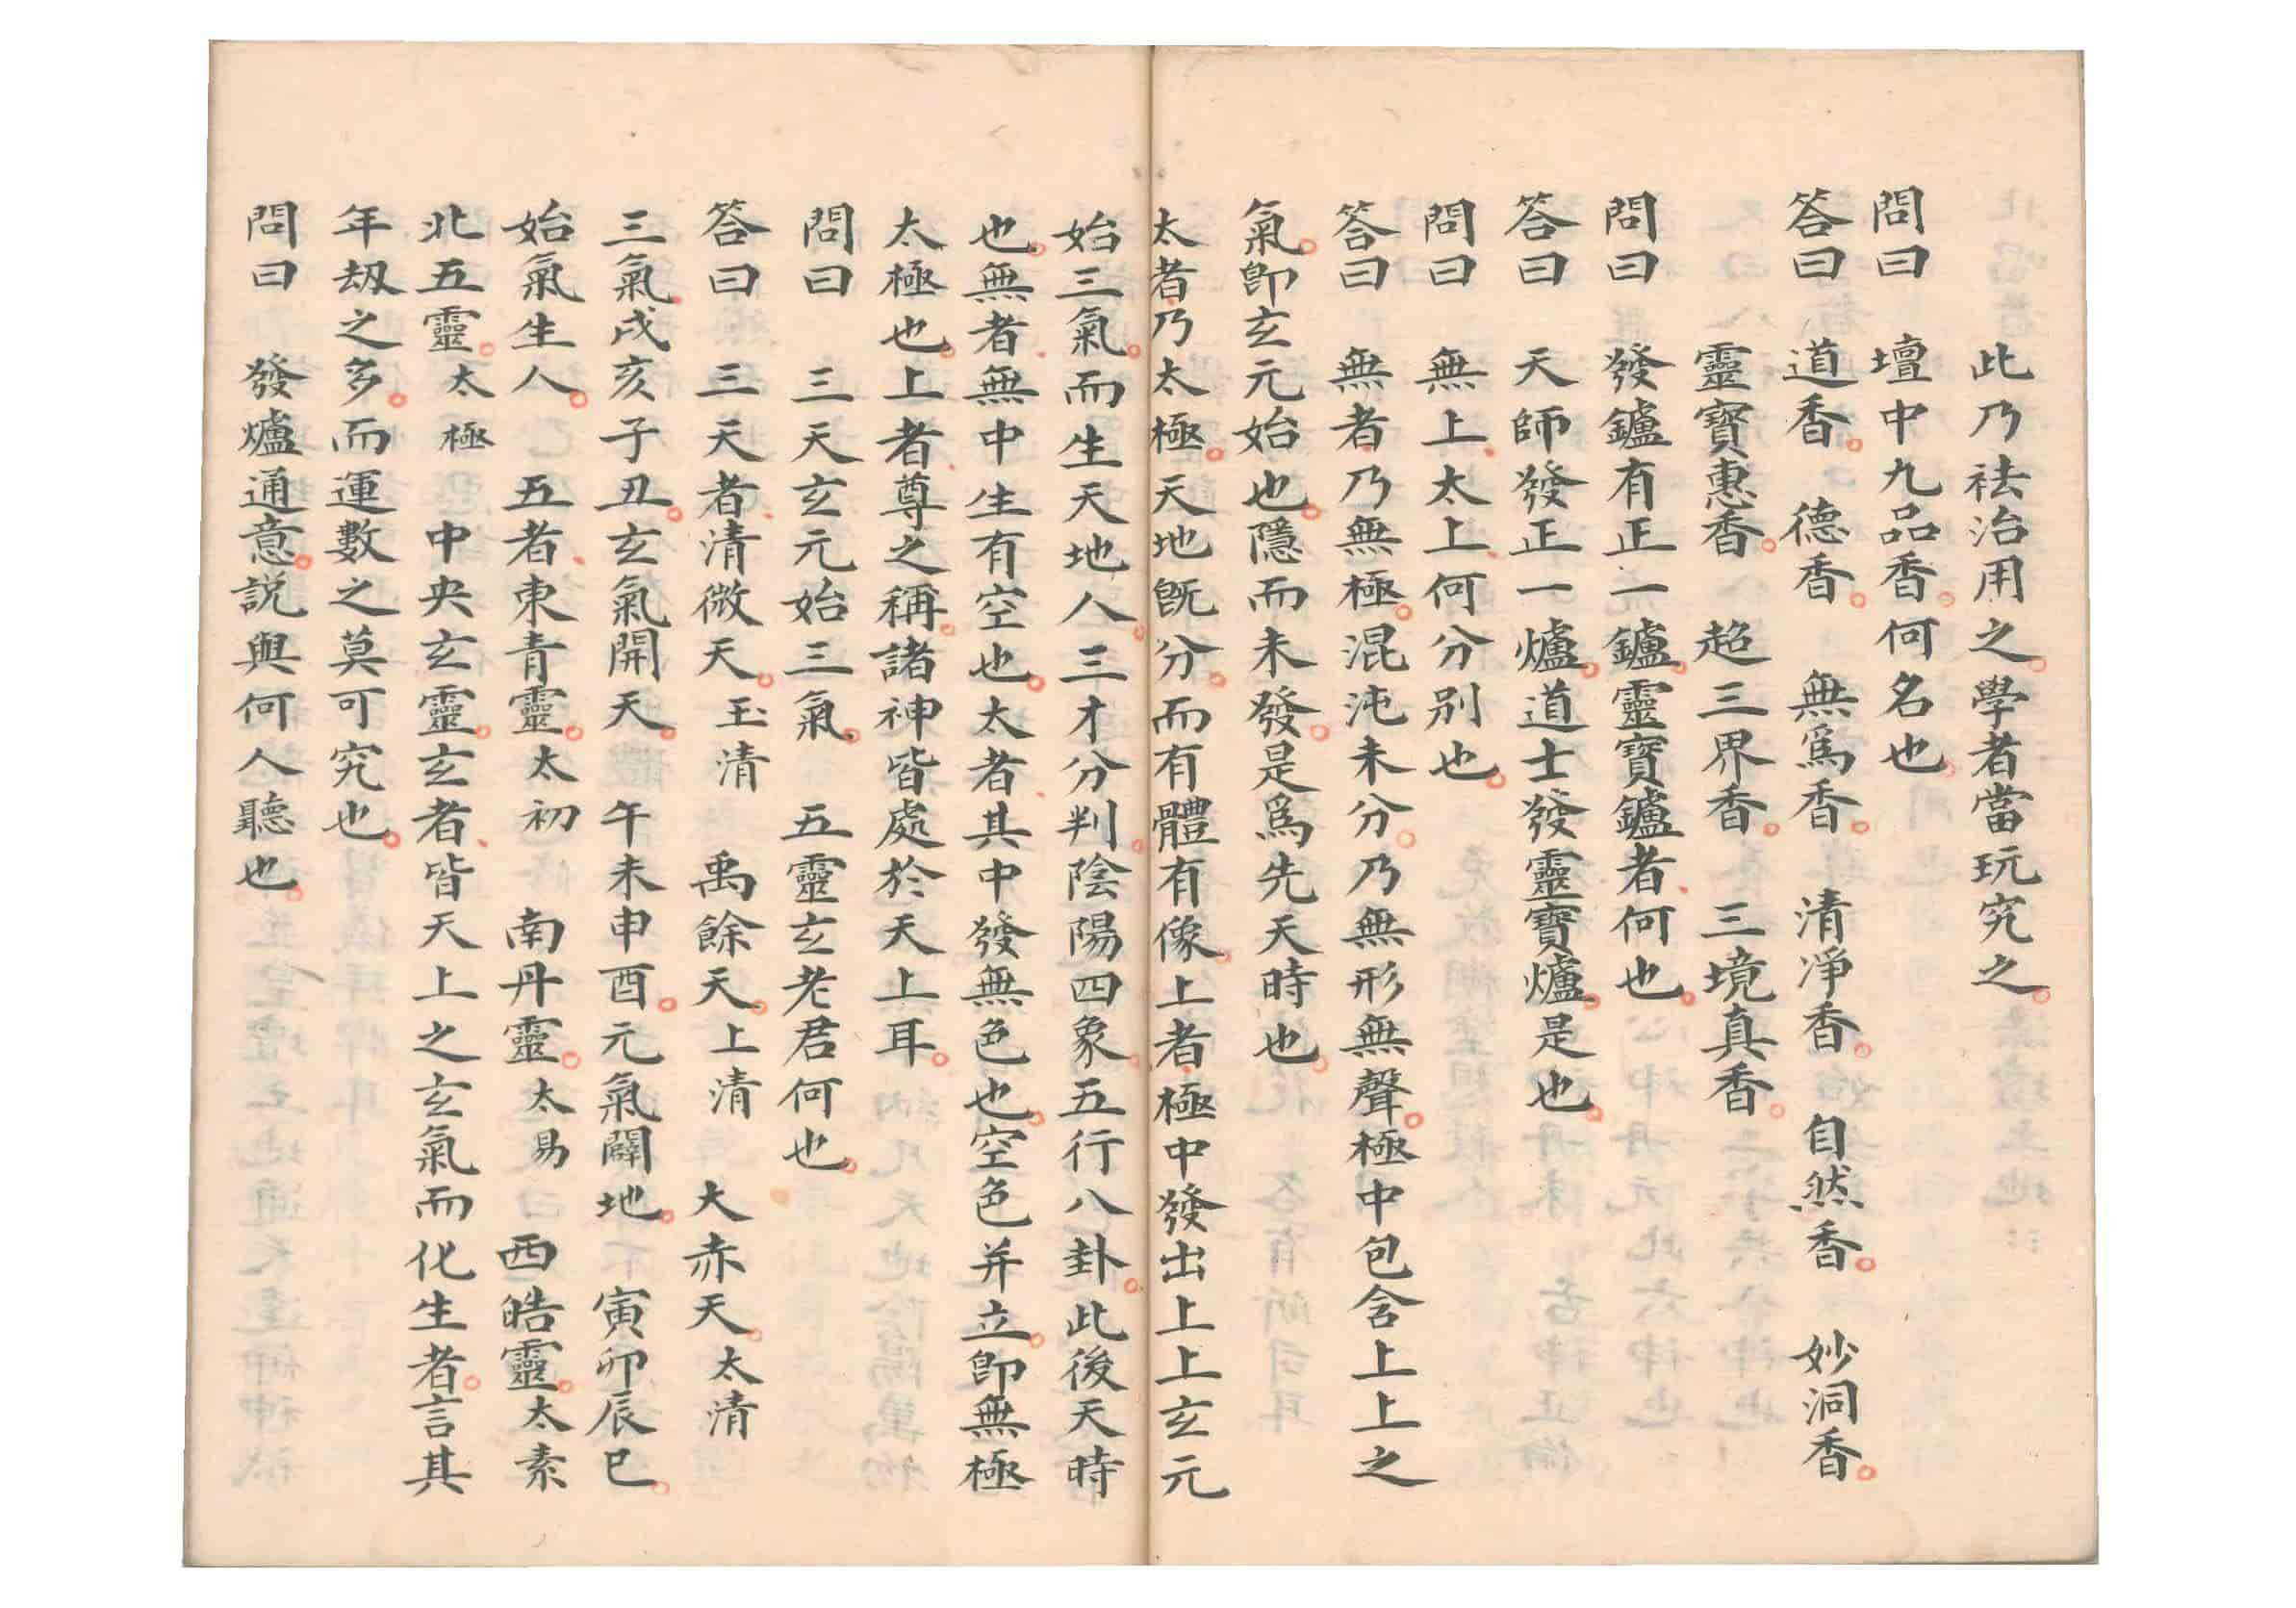 此乃祛治用之。學者當玩究之。
問曰　壇中九品香。何名也。
答曰　道香。　德香。　無爲香。　清淨香。　自然香。　妙洞香。
靈寳惠香。　超三界香。　三境真香。
問曰　發鑪有正一鑪。靈寳鑪者、何也。
答曰　天師發正一爐。道士發靈寳爐。是也。
問曰　無上、太上、何分別也。
答曰　無者、乃無極。混沌未分。乃無形無聲。極中包含上上之
氣。即玄元始也。隱而未發。是爲先天時也。
太者、乃太極。天地既分。而有體有像。上者、極中發出上上玄元
始三氣。而生天地人。三才分判。陰陽四象。五行八卦。此後天時
也。無者、無中生有空也。太者、其中發無色也。空色并立。即無極
太極也。上者、尊之稱。諸神皆處於天上耳。
問曰　三天玄元始三氣。　五靈玄老君何也。
答曰　三天者、清微天。玉清　禹餘天。上清　大赤天。太清
三氣、戌亥子丑。玄氣開天。　午未申酉。元氣闢地。　寅卯辰巳。
始氣生人。　五者、東青靈。太初　南丹靈。太易　西皓靈。太素
北五靈。太極　中央玄靈。玄者、皆天上之玄氣而化生者。言其
年劫之多。而運數之莫可究也。
問曰　發爐通意。説與何人聽也。